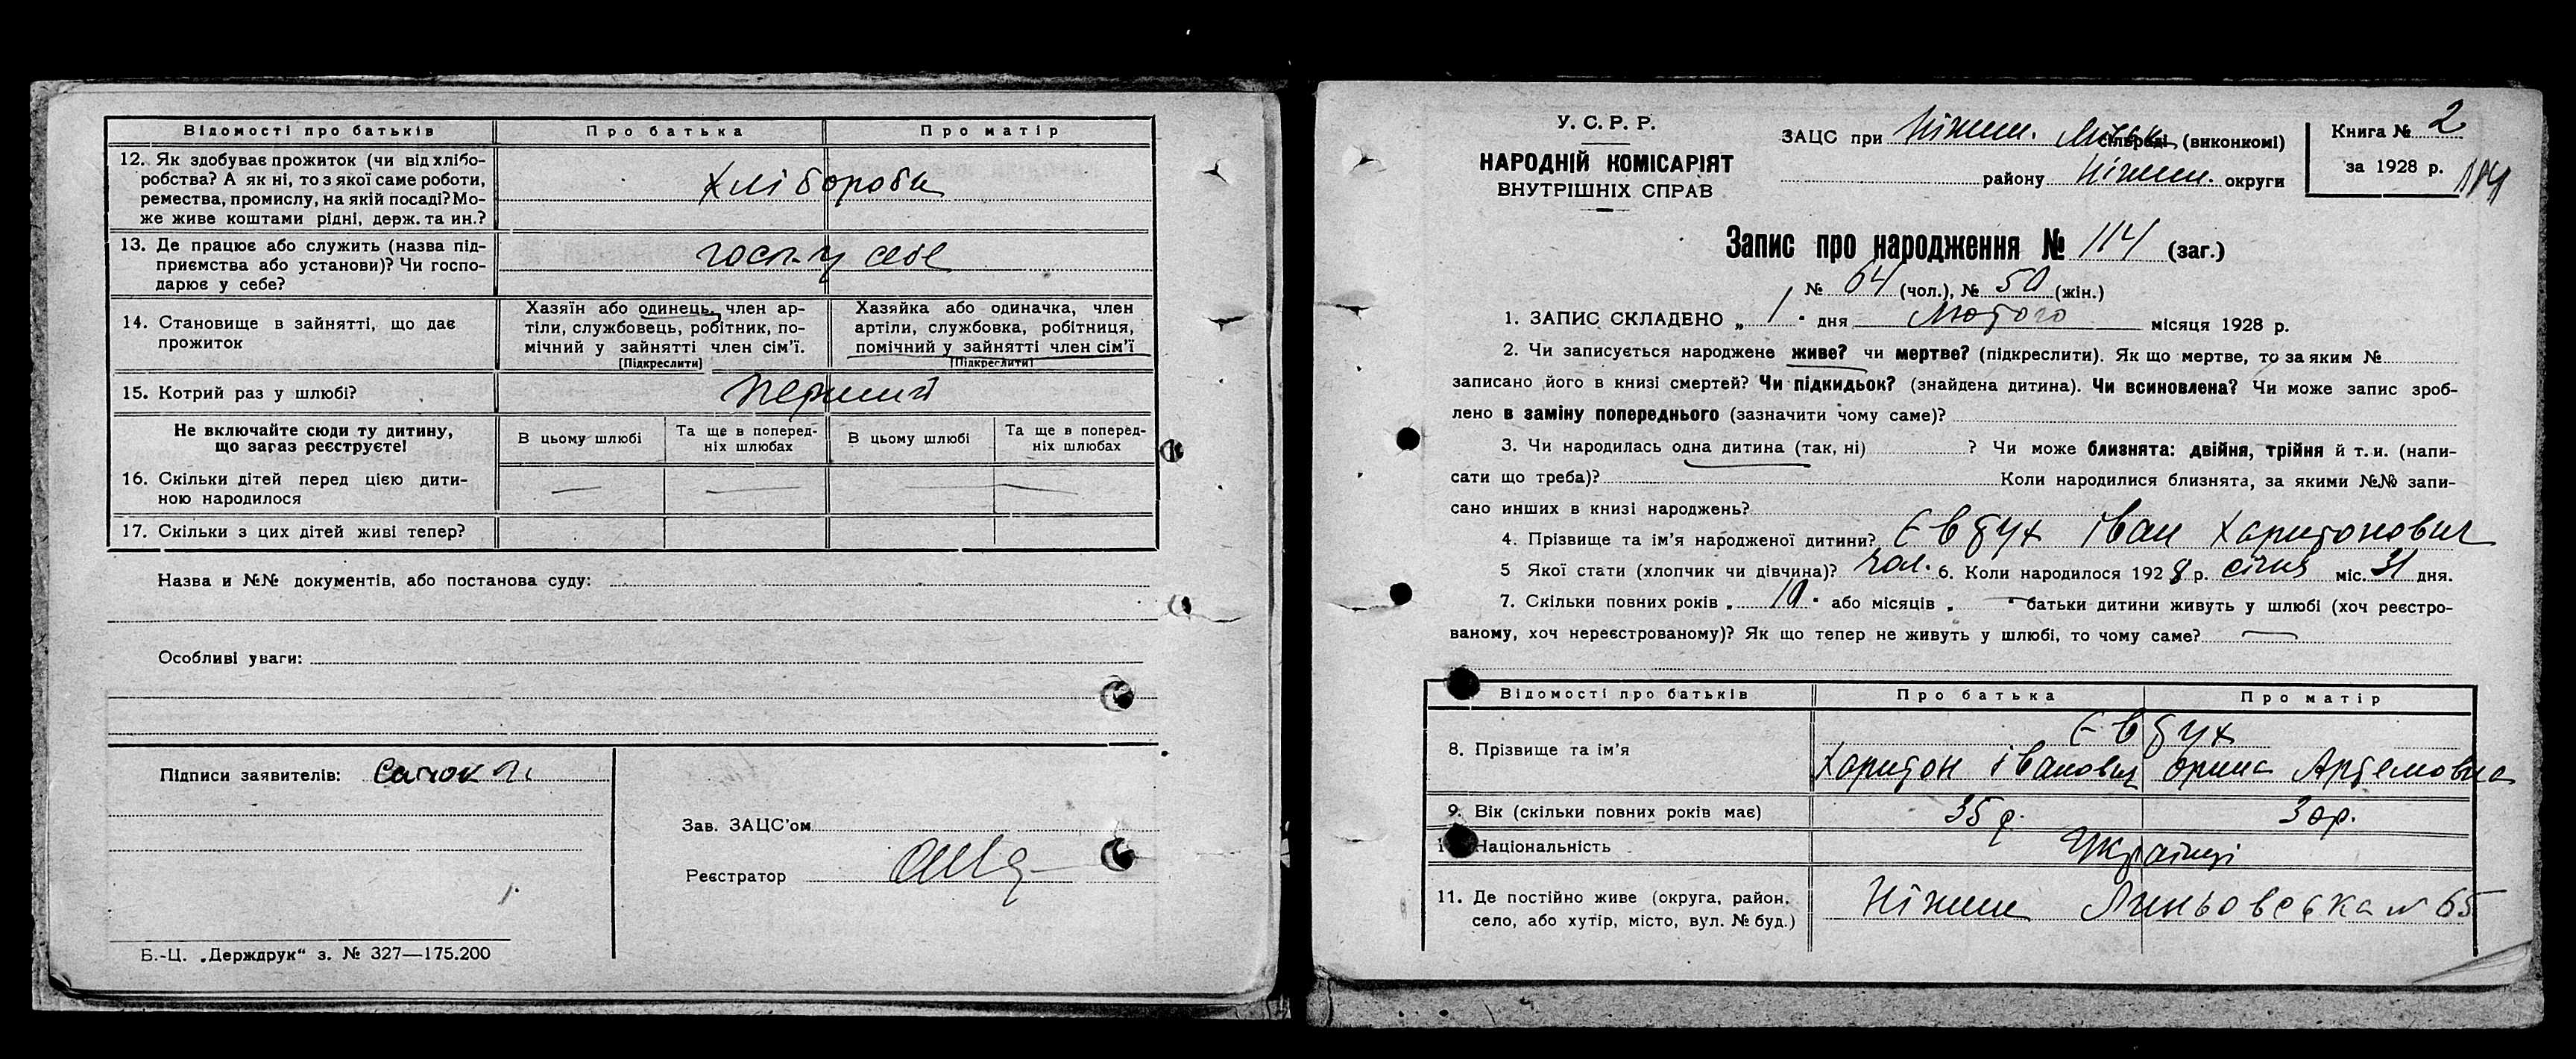 Відомості про батьків Про батька Про матір
12. Як здобуває прожиток (чи від хлібо-
робства? А як ні, то з якої саме роботи,
ремества, промислу, на якій посаді? Мо-
же живе коштами рідні, держ. та ин.?
Хлібороби
13. Де працює або служить (назва під-
приємства або установи)? Чи госпо-
дарює у себе?
госп. у себе
14. Становище в зайнятті, що дає
прожиток
Хазяїн або одинець, член ар-
тіли, службовець, робітник, по-
мічний у зайнятті член сім'ї.
(Підкреслити)
Хазяйка або одиначка, член
артіли, службовка, робітниця,
помічний у зайнятті член сім'ї
(Підкреслити)
15. Котрий раз у шлюбі? перший
Не включайте сюди ту дитину,
що загаз реєструєте!
В цьому шлюбі
Та ще в поперед-
ніх шлюбах
В цьому шлюбі
Та ще в поперед-
ніх шлюбах
16. Скільки дітей перед цією дити-
ною народилося — — —
17. Скільки з цих дітей живі тепер?
Назва и №№ документів, або постанова суду:
Особливі уваги:
Підписи заявителів:
Зав. ЗАЦС'ом
Реєстратор
Б.-Ц. „Держдрук“ з. № 327—175.200
У. С. Р. Р.
НАРОДНІЙ КОМІСАРІЯТ
ВНУТРІШНІХ СПРАВ
ЗАЦС при Ніжин. сільраді (виконкомі)
району Ніжин. округи
Книга № 2
за 1928 р.
Запис про народження № 114 (заг.)
№ 64 (чол.), № 50 (жін.)
1. ЗАПИС СКЛАДЕНО „ 1 " дня Лютого місяця 1928 р.
2. Чи записується народжене живе? чи мертве? (підкреслити). Як що мертве, то за яким №
записано його в книзі смертей? Чи підкидьок? (знайдена дитина). Чи всиновлена? Чи може запис зроб-
лено в заміну попереднього (зазначити чому саме)?
3. Чи народилась одна дитина (так, ні) ? Чи може близнята: двійня, трійня й т. и. (напи-
сати що треба)? Коли народилися близнята, за якими №№ запи-
сано инших в книзі народжень?
4. Прізвище та ім'я народженої дитини? Євтух Іван Харитонович
5 Якої стати (хлопчик чи дівчина)? чол. 6. Коли народилося 1928 р. січня міс. 31 дня.
7. Скільки повних років „ 10 " або місяців „ " батьки дитини живуть у шлюбі (хоч реєстро-
ваному, хоч нереєстрованому)? Як що тепер не живуть у шлюбі, то чому саме? —
Відомості про батьків Про батька Про матір
8. Прізвище та ім'я
Євтух
Харитон Іванович Орина Артемовна
9. Вік (скільки повних років має) 35 р. 30 р.
10. Національність Українці
11. Де постійно живе (округа, район,
село, або хутір, місто, вул. № буд.)
Ніжин № 65